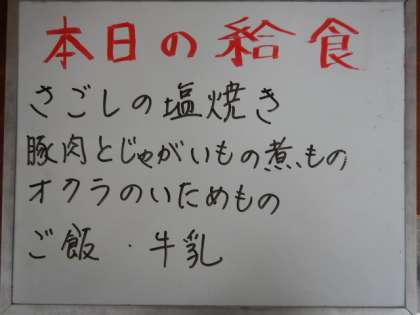 本日の給食
さごしの塩焼き
豚肉とじゃがいもの煮もの
オクラのいためもの
ご飯・牛乳